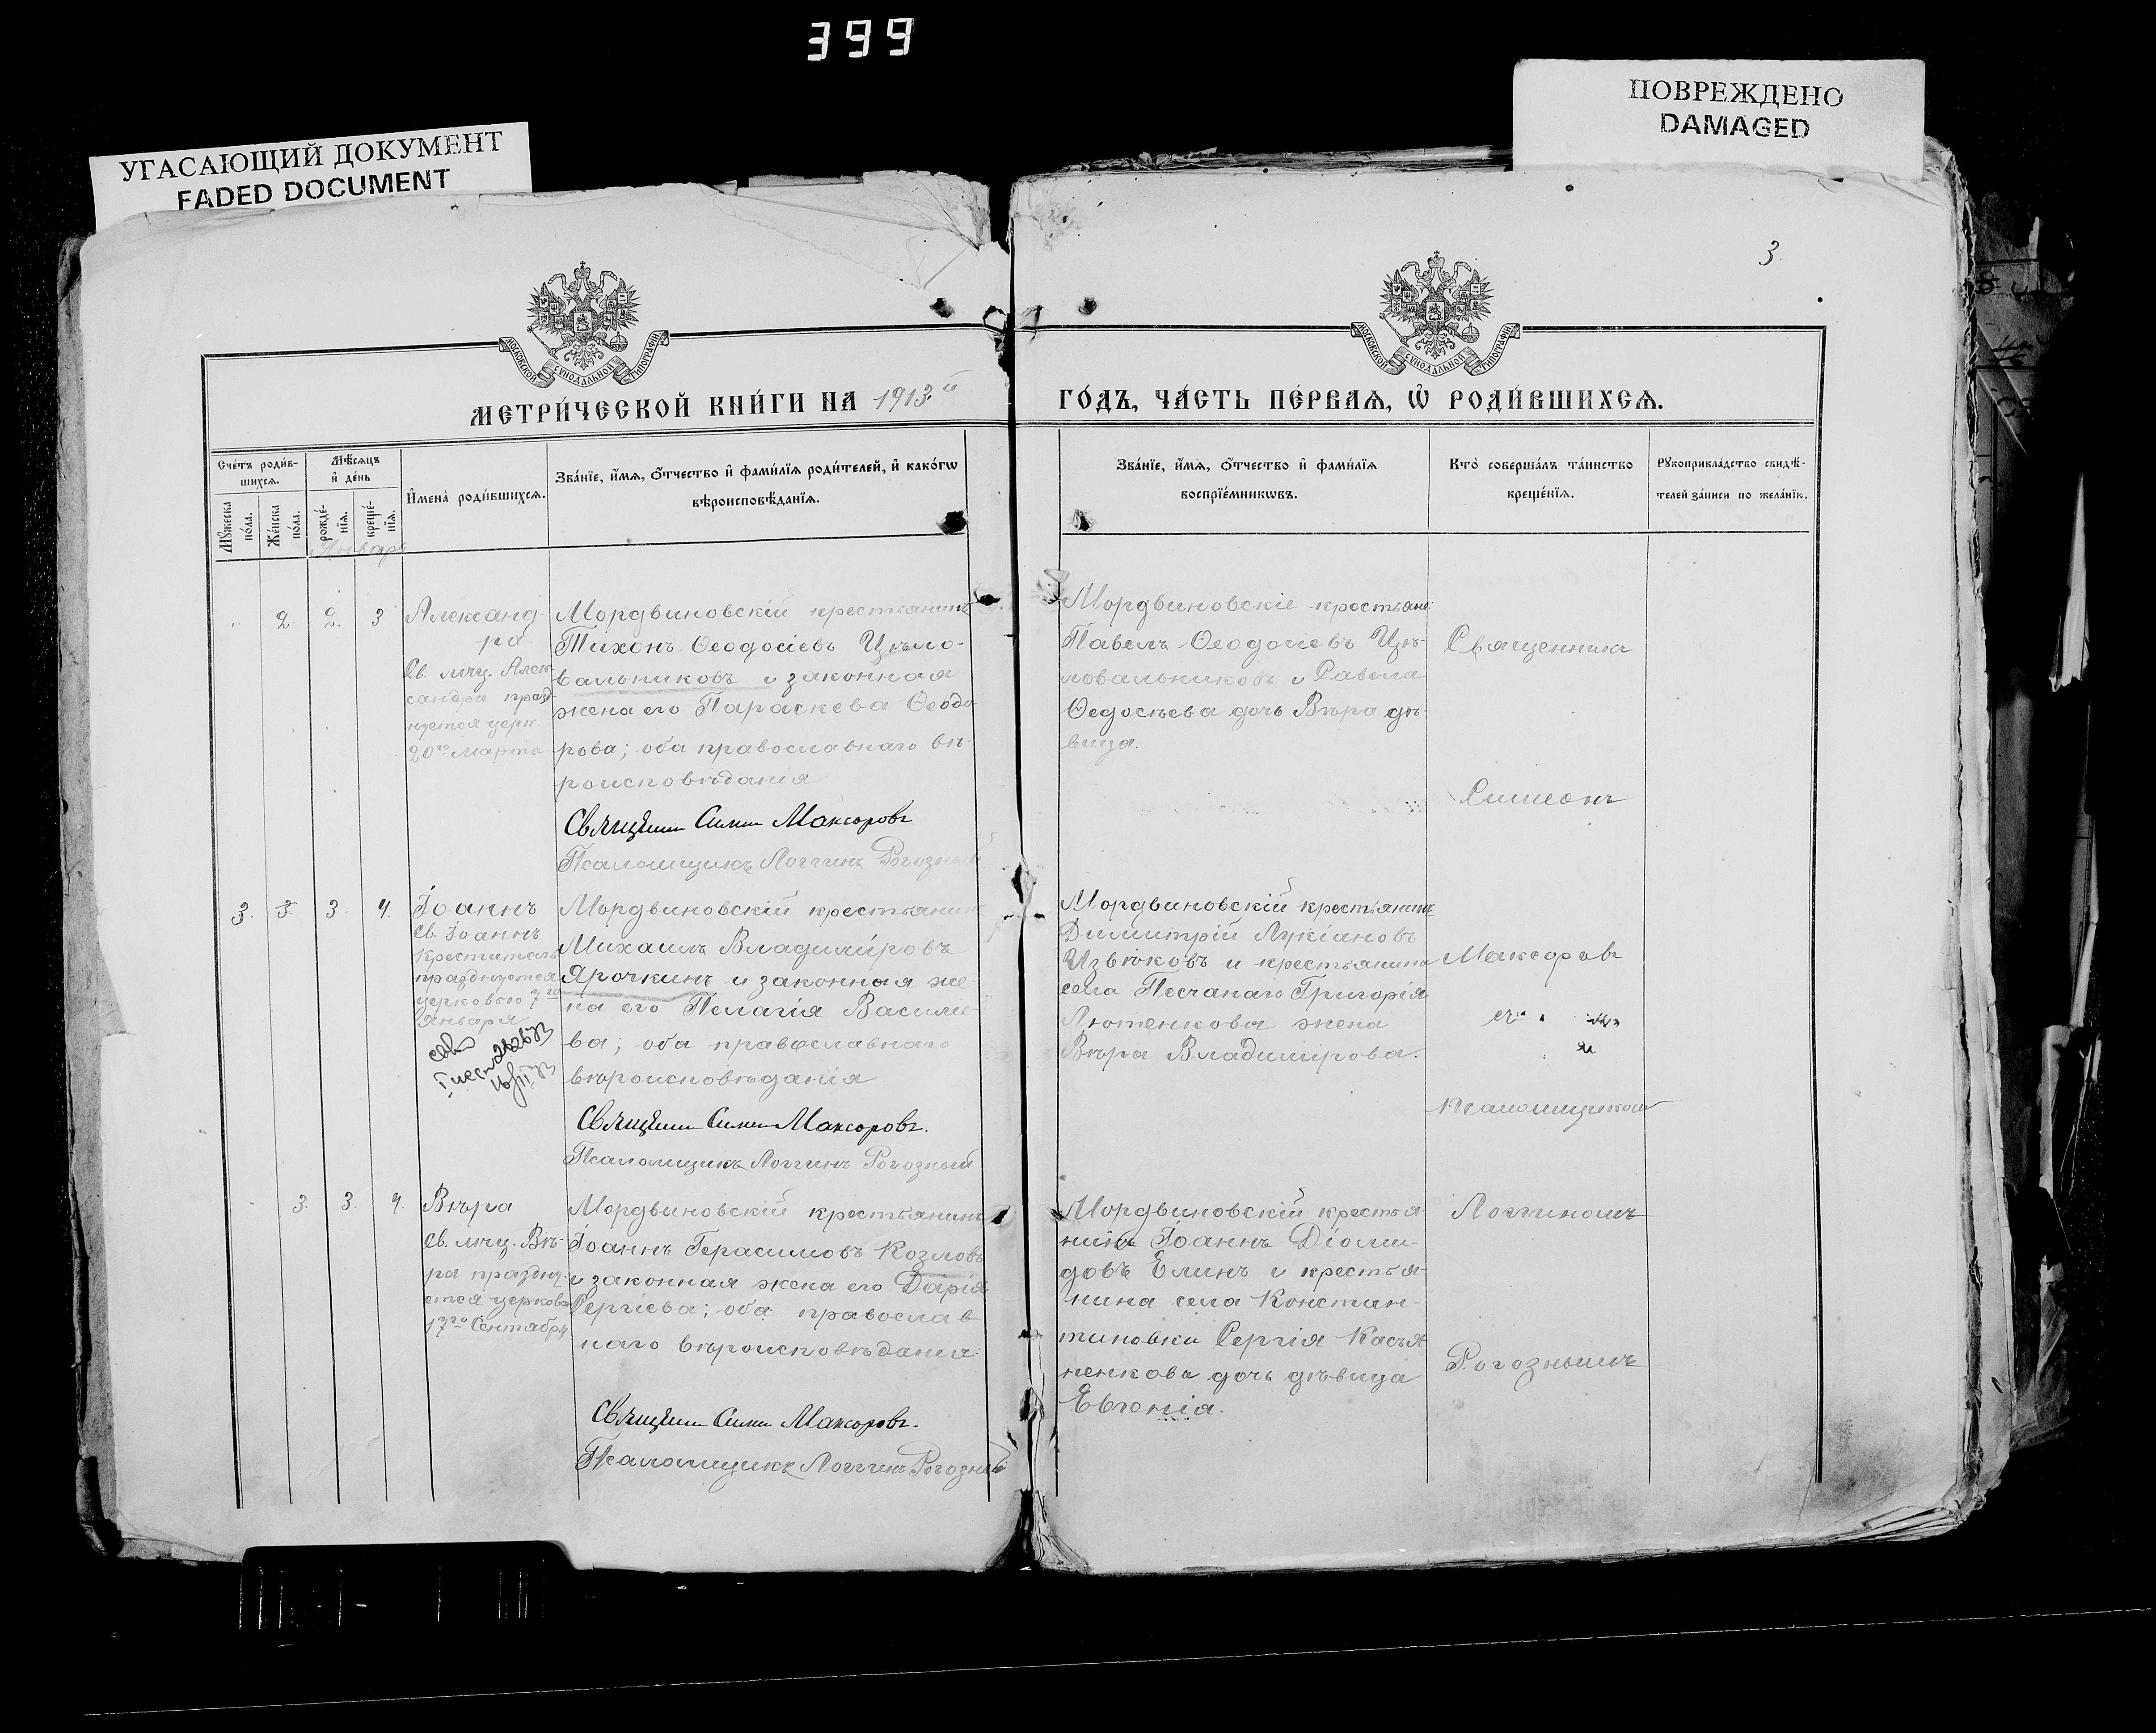 399
УГАСАЮЩИЙ ДОКУМЕНТ
FADED DOCUMENT
ПОВРЕЖДЕНО
DAMAGED
3.
МОСКОВСКОЙ СУНОДАЛЬНОЙ ТИПОГРАФІИ
МОСКОВСКОЙ СУНОДАЛЬНОЙ ТИПОГРАФІИ
МЕТРИ́ЧЕСКОЙ КНИ́ГИ НА 1913.й
ГО́ДЪ, ЧА́СТЬ ПЕ́РВАѦ, Ѡ҆ РОДИ́ВШИХСѦ.
Сче́тъ роди́в-
шихсѧ.
Мꙋжеска
по́ла.
Же́нска
по́ла.
Мѣ́сѧцъ
и҆ де́нь
рожде́-
нїѧ.
креще́-
нїѧ.
И҆мена̀ роди́вшихсѧ.
Зва́нїе, и҆́мѧ, ѻ҆́тчество и҆ фами́лїѧ роди́телей, и҆ како́гѡ
вѣроисповѣ́данїѧ.
Зва́нїе, и҆́мѧ, ѻ҆́тчество и҆ фами́лїѧ
воспрїе́мникѡвъ.
Кто̀ соверша́лъ та́инство
креще́нїѧ.
Рꙋкоприкла́дство свидѣ́-
телей за́писи по жела́нїю.
Январь
2. 2. 3
Александ-
ра
Св. мчц. Алек-
сандра празд-
нуется церк.
20го Марта
Мордвиновскій крестьянинъ
Тихонъ Ѳеодосіевъ Цѣло-
вальниковъ и законная
жена его Параскева Ѳеодо-
рова; оба православнаго вѣ-
роисповѣданія
Максоровъ
Псаломщикъ Логгинъ Рогозный
Мордвиновскіе крестьяне
Павелъ Ѳеодосіевъ Цѣ-
ловальниковъ и
Ѳедосѣева дочь Вѣра дѣ-
вица.
Священникъ
Симеонъ
3. 3. 3. 4.
Іоаннъ
Св. Іоаннъ
Креститель
празднуется
церковью 7го
Января
Мордвиновскій крестьянинъ
Михаилъ Владиміровъ
Ярочкинъ и законная же-
на его Пелагія Василье-
ва; оба православнаго
вѣроисповѣданія
Максоровъ.
Псаломщикъ Логгинъ Рогозный
Мордвиновскій крестьянинъ
Димитрій Лукіановъ
Извѣковъ и крестьянина
села Песчанаго Григорія
Лютенкова жена
Вѣра Владимірова.
Максоровъ
съ
псаломщикомъ
3. 3. 4.
Вѣра
Св. мчц. Вѣ-
ра праздну-
ется церковью
17го Сентября
Мордвиновскій крестьянинъ
Іоаннъ Герасимовъ Козловъ
и законная жена его Дарія
Сергіева; оба православ-
наго вѣроисповѣданія.
Максоровъ.
Псаломщикъ Логгинъ Рогозный
Мордвиновскій крестья-
нинъ Іоаннъ Діоми-
довъ Елинъ и крестья-
нина села Констан-
тиновки Сергія Касья-
ненкова дочь дѣвица
Евгенія.
Логгиномъ
Рогознымъ